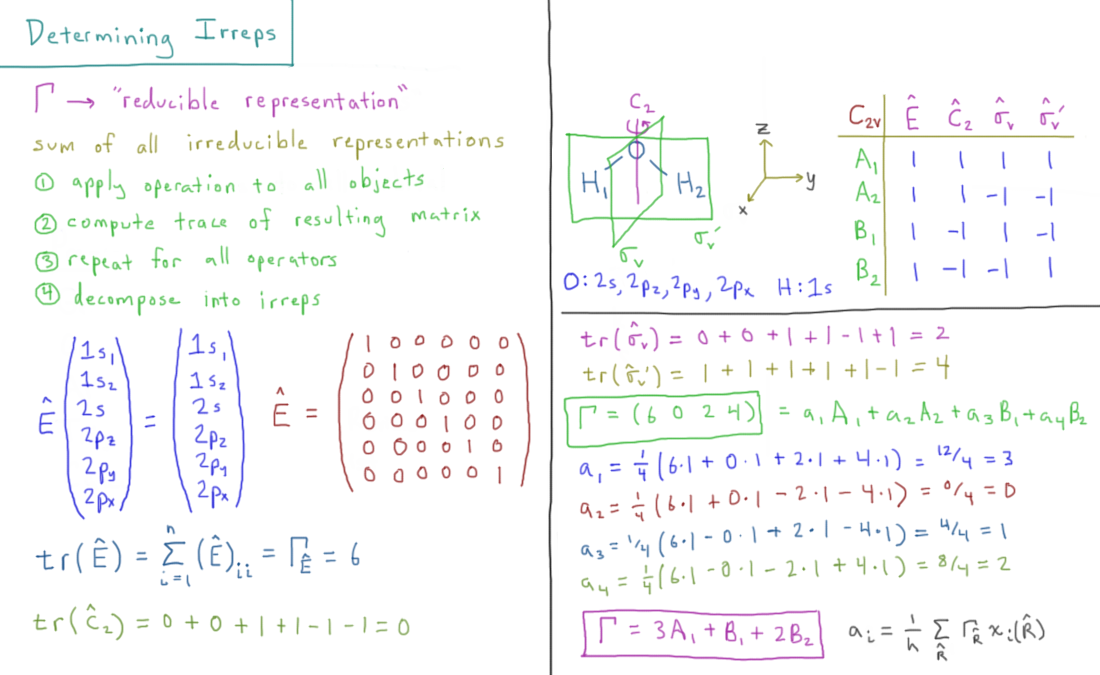 Determining Irreps
Γ → "reducible representation"
sum of all irreducible representations
① apply operation to all objects
② compute trace of resulting matrix
③ repeat for all operators
④ decompose into irreps
Ê (1s₁ 1s₂ 2s 2p_z 2p_y 2p_x) = (1s₁ 1s₂ 2s 2p_z 2p_y 2p_x)
Ê =
1 0 0 0 0 0
0 1 0 0 0 0
0 0 1 0 0 0
0 0 0 1 0 0
0 0 0 0 1 0
0 0 0 0 0 1
tr(Ê) = Σ_{i=1}^{n} (Ê)_{ii} = Γ_Ê = 6
tr(Ĉ₂) = 0 + 0 + 1 + 1 - 1 - 1 = 0
C₂
O
H₁ H₂
σᵥ'
σᵥ
z
y
x
C₂ᵥ Ê Ĉ₂ σ̂ᵥ σ̂ᵥ'
A₁ 1 1 1 1
A₂ 1 1 -1 -1
B₁ 1 -1 1 -1
B₂ 1 -1 -1 1
O: 2s, 2p_z, 2p_y, 2p_x H: 1s
tr(σ̂ᵥ) = 0 + 0 + 1 + 1 - 1 + 1 = 2
tr(σ̂ᵥ') = 1 + 1 + 1 + 1 + 1 - 1 = 4
Γ = (6 0 2 4) = a₁A₁ + a₂A₂ + a₃B₁ + a₄B₂
a₁ = 1/4 (6·1 + 0·1 + 2·1 + 4·1) = 12/4 = 3
a₂ = 1/4 (6·1 + 0·1 - 2·1 - 4·1) = 0/4 = 0
a₃ = 1/4 (6·1 - 0·1 + 2·1 - 4·1) = 4/4 = 1
a₄ = 1/4 (6·1 - 0·1 - 2·1 + 4·1) = 8/4 = 2
Γ = 3A₁ + B₁ + 2B₂
a_i = 1/h Σ_R̂ Γ_R̂ χ_i(R̂)